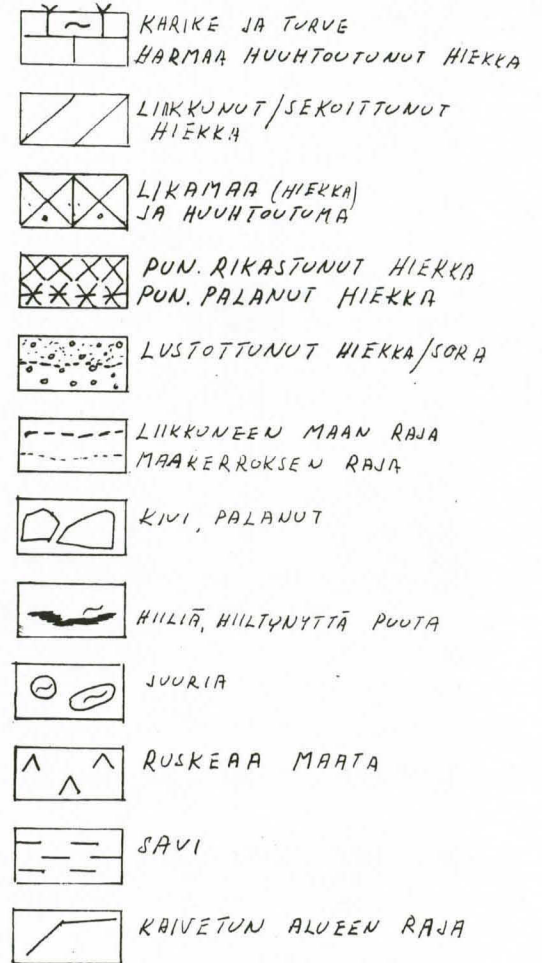 KARIKE JA TURVE
HARMAA HUUHTOUTUNUT HIEKKA
LIIKKUNUT/SEKOITTUNUT
HIEKKA
LIKAMAA (HIEKKA)
JA HUUHTOUTUMA
PUN. RIKASTUNUT HIEKKA
PUN. PALANUT HIEKKA
LUSTOTTUNUT HIEKKA/SORA
LIIKKUNEEN MAAN RAJA
MAAKERROKSEN RAJA
KIVI, PALANUT
HIILIÄ, HIILTYNYTTÄ PUUTA
JUURIA
RUSKEAA MAATA
SAVI
KAIVETUN ALUEEN RAJA